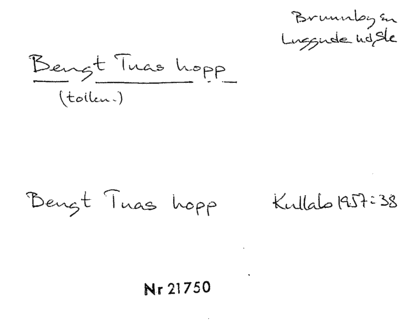 Brunnby sn
Luggude hd, Sk
Bengt Tuas hopp
(tolkn.)
Bengt Tuas hopp Kullabo 1957:38
Nr 21750